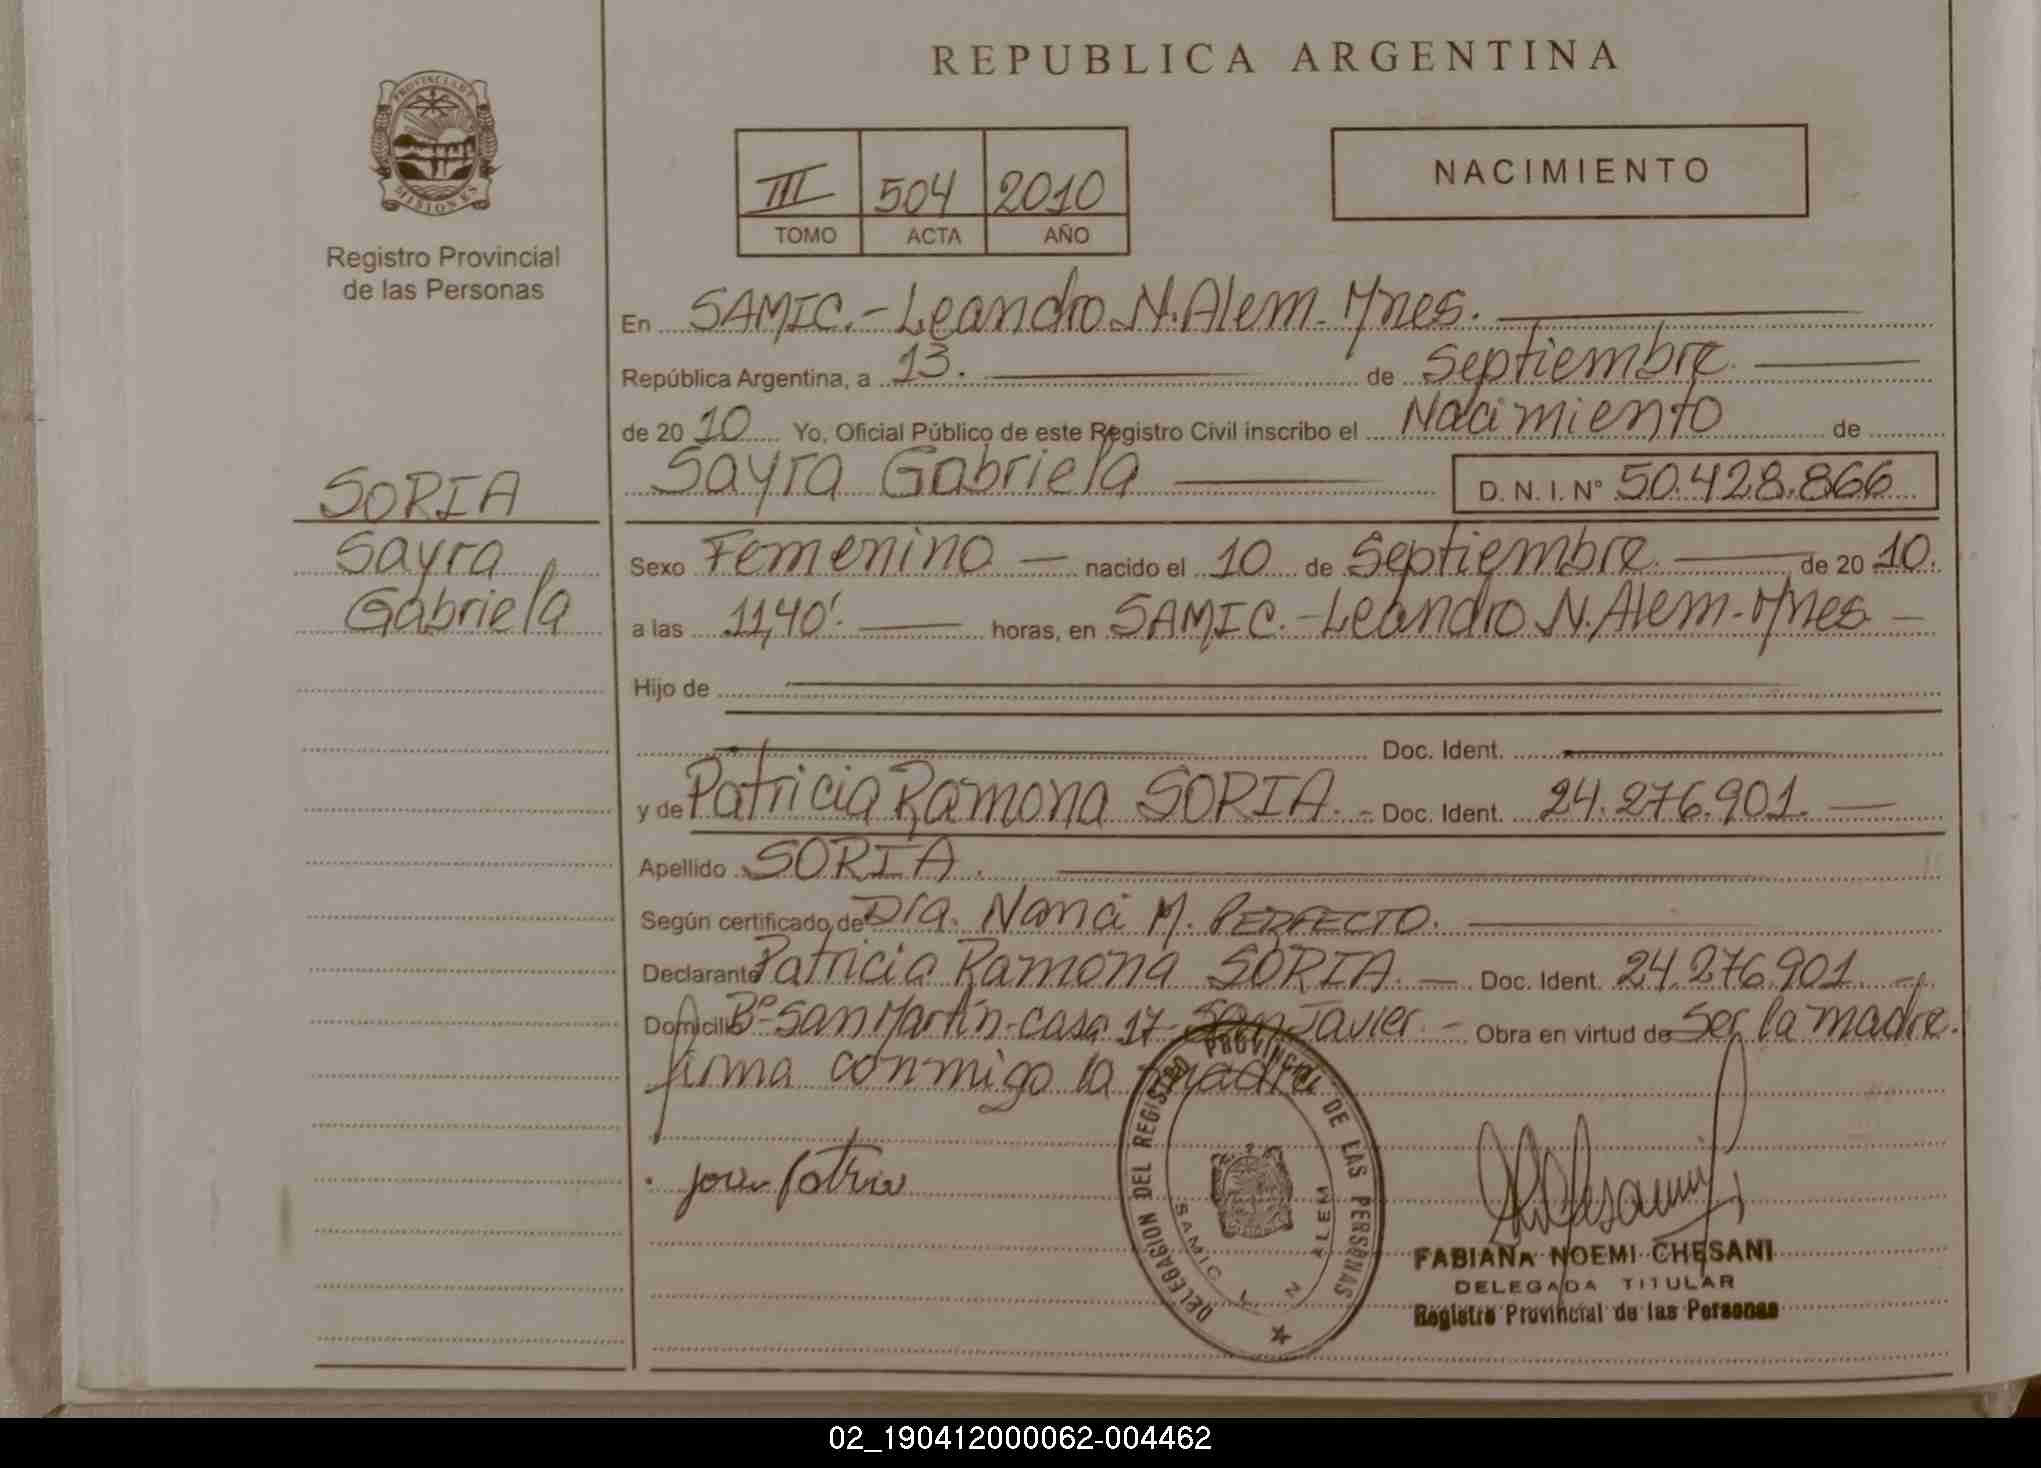 REPUBLICA ARGENTINA
PROVINCIA DE MISIONES
Registro Provincial
de las Personas
III 504 2010
TOMO ACTA AÑO
NACIMIENTO
En SAMIC.-Leandro N. Alem-Mnes.
República Argentina, a 13. de Septiembre
de 2010 Yo, Oficial Público de este Registro Civil inscribo el Nacimiento de
Sayra Gabriela D. N. I. N° 50.428.866
SORIA
Sayra
Gabriela
Sexo Femenino nacido el 10 de Septiembre de 2010.
a las 11,40'. horas, en SAMIC.-Leandro N. Alem-Mnes
Hijo de
Doc. Ident.
y de Patricia Ramona SORIA.- Doc. Ident. 24.276.901.
Apellido SORIA.
Según certificado de Dra. Nanci M. PERFECTO.
Declarante Patricia Ramona SORIA. Doc. Ident. 24.276.901
Domicilio B° San Martín-casa 17-San Javier.- Obra en virtud de Ser la madre.
firma conmigo la madre
DELEGACION DEL REGISTRO PROVINCIAL DE LAS PERSONAS
SAMIC L. N. ALEM
FABIANA NOEMI CHESANI
DELEGADA TITULAR
Registro Provincial de las Personas
02_190412000062-004462